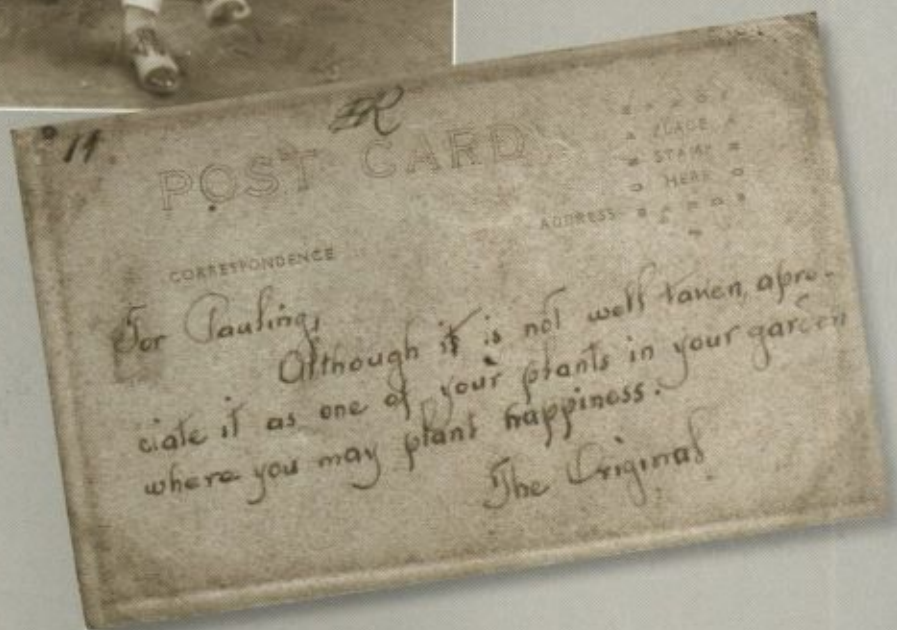 11
ER
POST CARD
PLACE
STAMP
HERE
CORRESPONDENCE
ADDRESS
For Pauling,
Although it is not well taken, apre-
ciate it as one of your plants in your garden
where you may plant happiness.
The Original